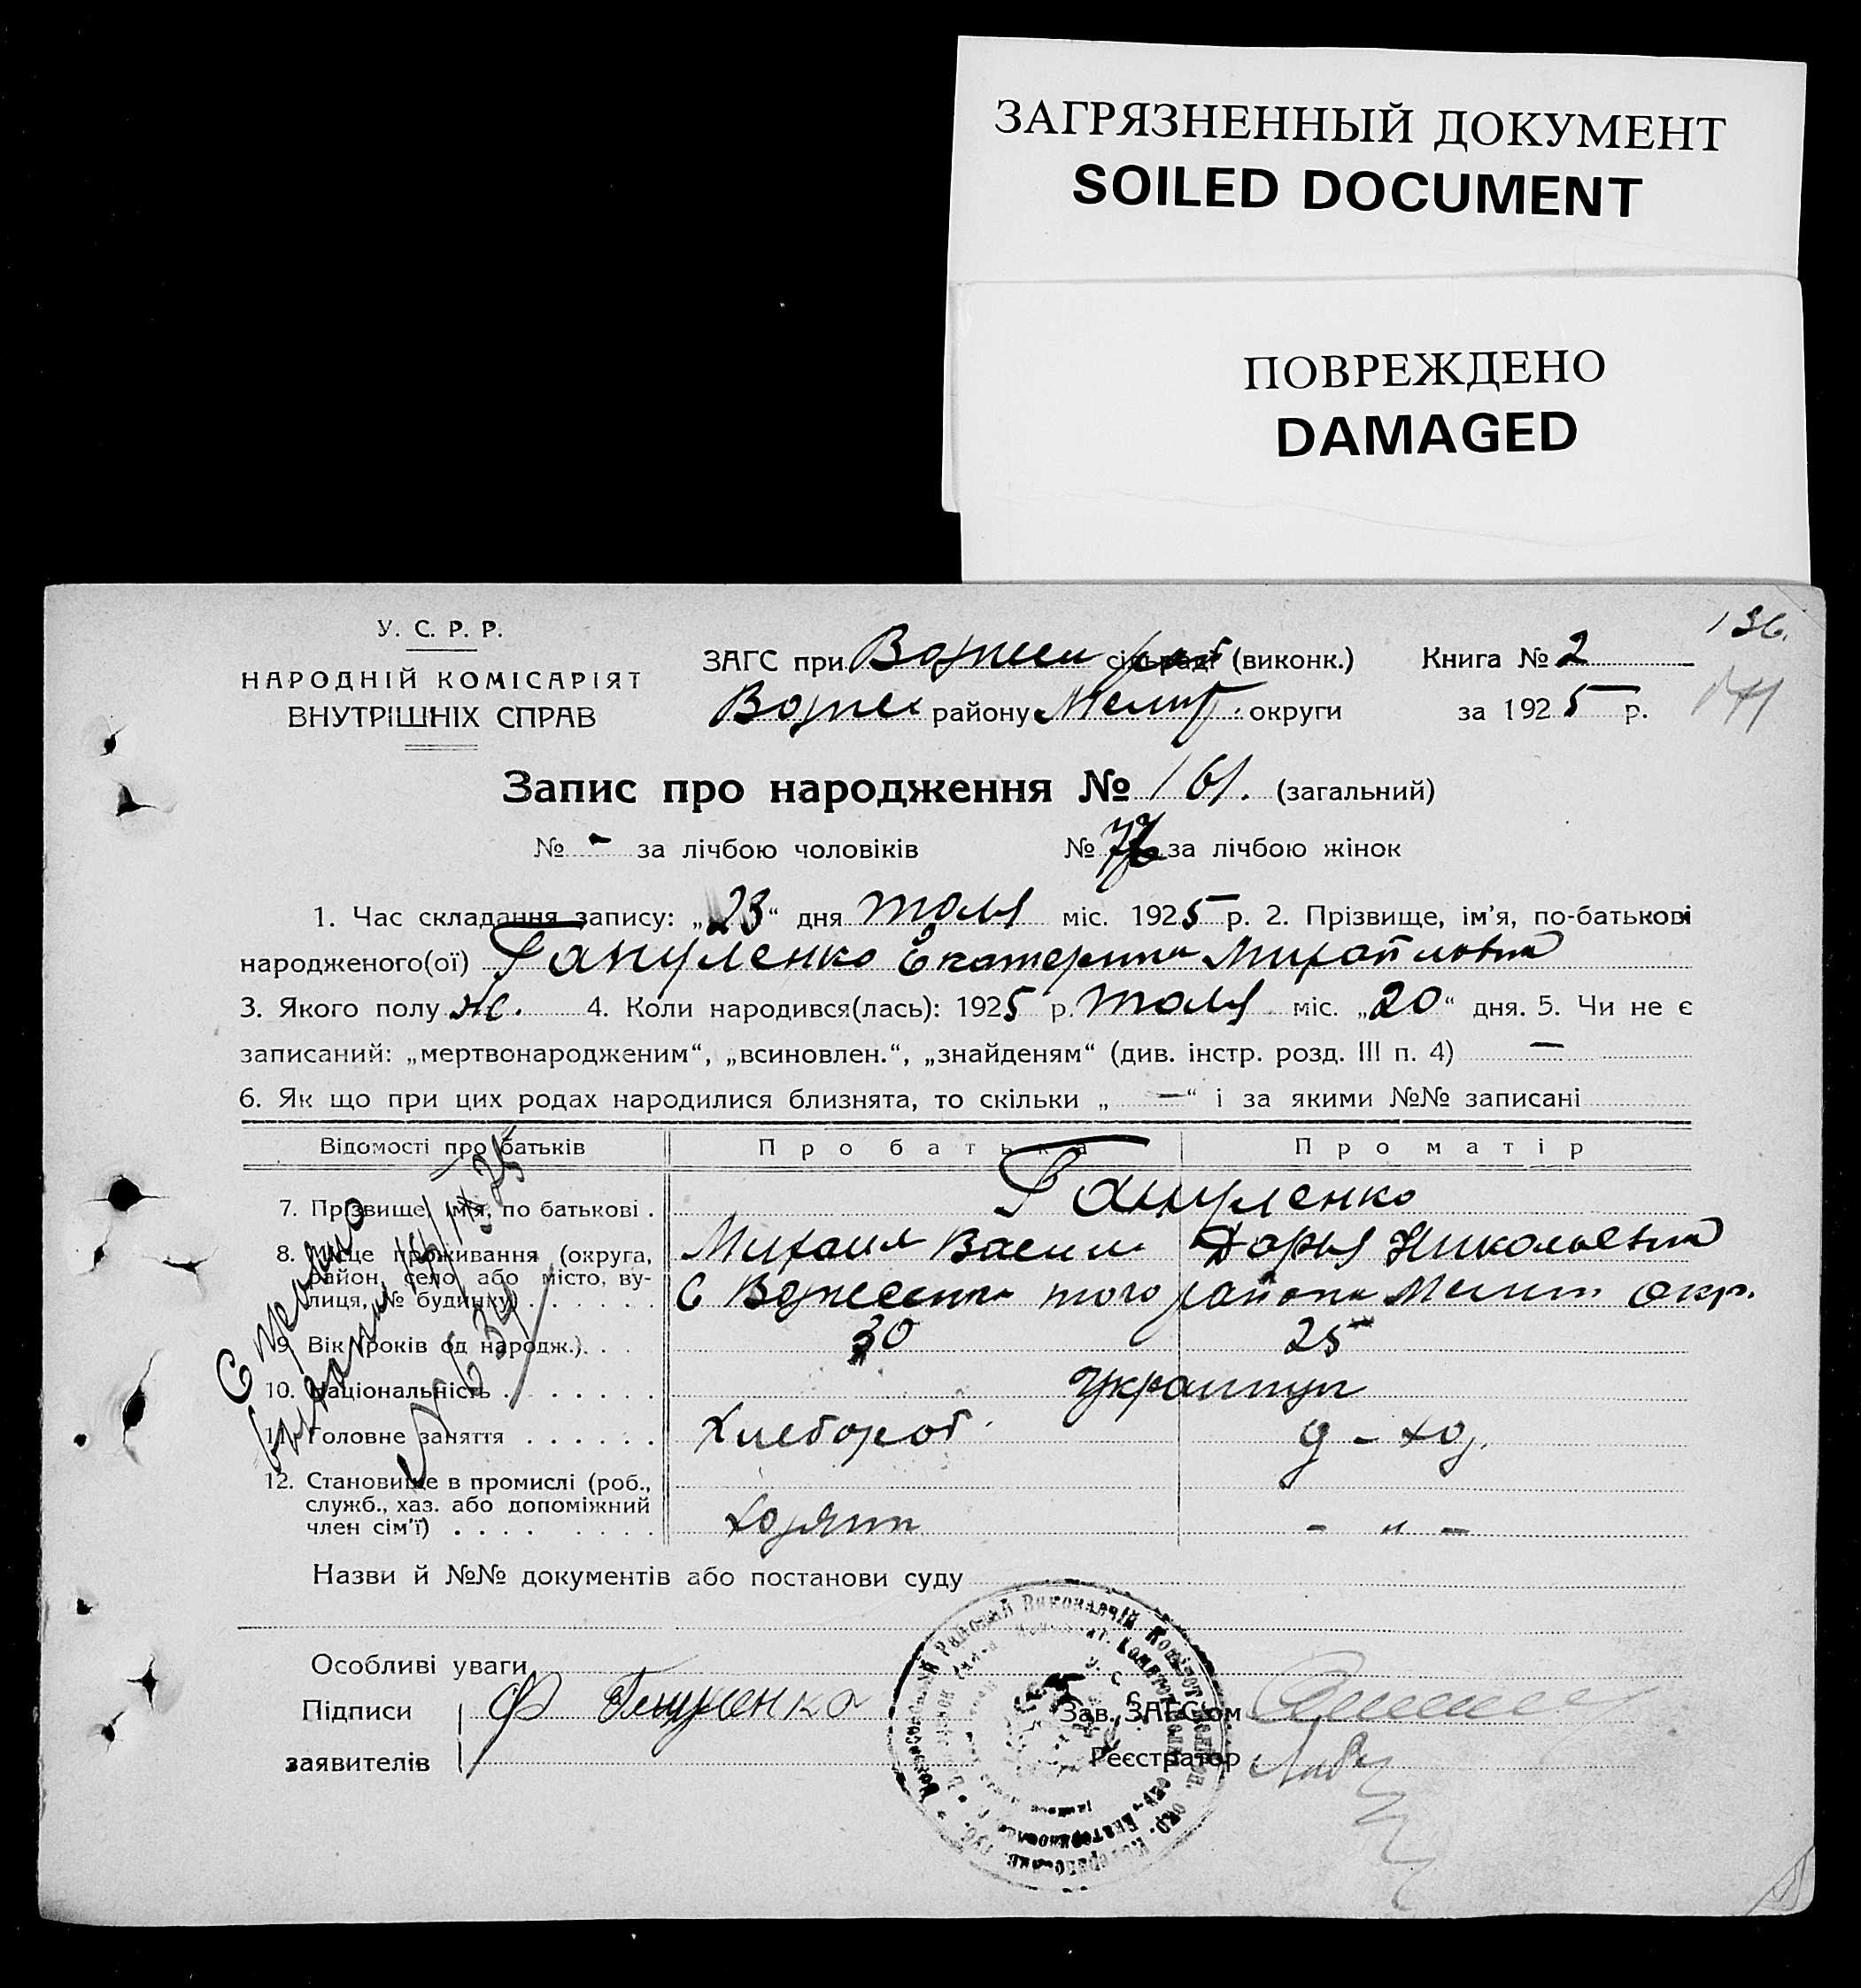 ЗАГРЯЗНЕННЫЙ ДОКУМЕНТ
SOILED DOCUMENT
ПОВРЕЖДЕНО
DAMAGED
136.
У. С. Р. Р.
НАРОДНІЙ КОМІСАРІЯТ
ВНУТРІШНІХ СПРАВ
ЗАГС при сільраді (виконк.) Книга № 2
району Мелит. округи за 1925 р.
Запис про народження № 161. (загальний)
№ - за лічбою чоловіків № за лічбою жінок
1. Час складання запису: „23“ дня июля міс. 1925 р. 2. Прізвище, ім’я, по-батькові
народженого(ої) Гануленко Екатерина Михайловна
3. Якого полу ж. 4. Коли народився(лась): 1925 р. июля міс. „20“ дня. 5. Чи не є
записаний: „мертвонародженим“, „всиновлен.“, „знайденям“ (див. інстр. розд. III п. 4) —
6. Як що при цих родах народилися близнята, то скільки „—“ і за якими №№ записані
Відомості про батьків Про батька Про матір
7. Прізвище, ім’я, по батькові . Гануленко
Михаил Васили Дарья Николаевна
8. Місце проживання (округа,
район, село або місто, ву-
лиця, № будинку) . . . . . . С Вознесенка того района Мелит. окр.
9. Вік (років од народж.) . . . 30 25
10. Національність . . . . . . украинцы
11. Головне заняття . . . . . . Хлебороб. д - хоз.
12. Становище в промислі (роб.,
служб., хаз. або допоміжний
член сім’ї) . . . . . . . . хозяин - „ -
Справка
выдана 15/IX 25
№ 634
Назви й №№ документів або постанови суду
Особливі уваги
Підписи Ф Гануленко Зав. ЗАГС’ом
заявителів Реєстратор